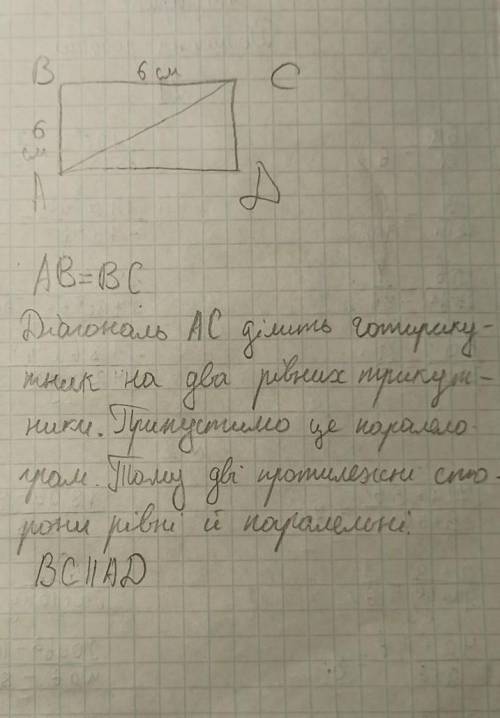 B 6 см C
6
см
A Д
AB=BC
Діагональ AC ділить чотирику-
тник на два рівних трикут-
ники. Припустимо це паралело-
грам. Тому дві протилежні сто-
рони рівні й паралельні.
BC||AD